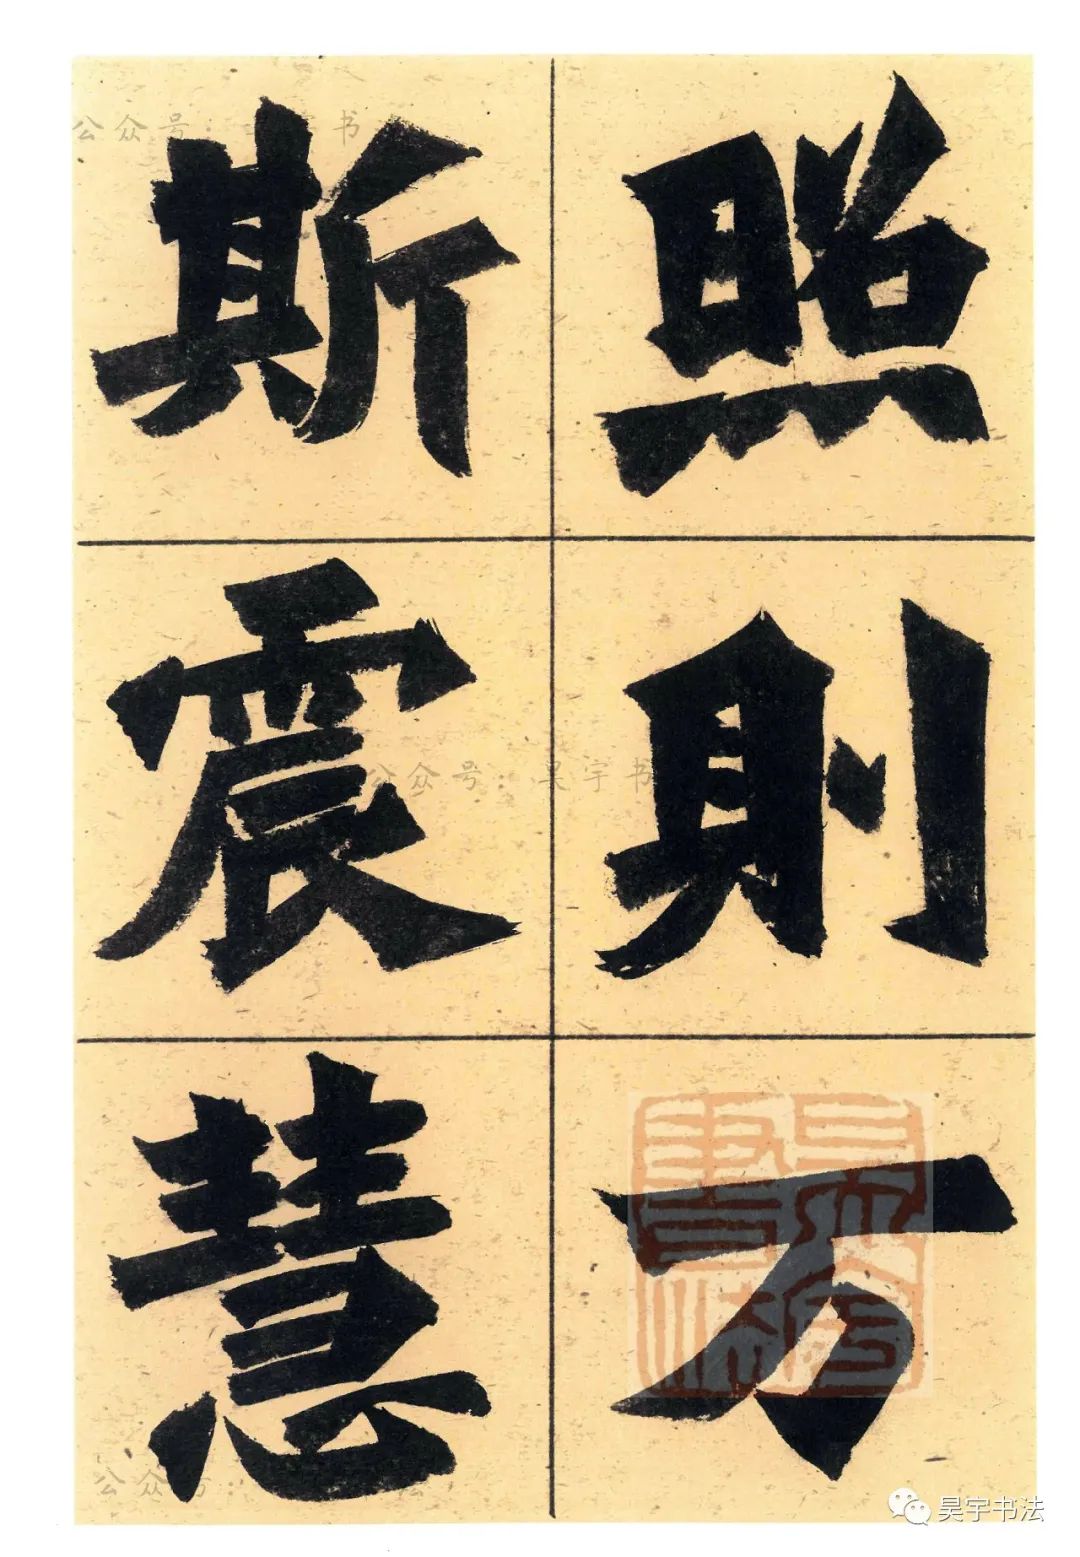 照則万
斯震慧
公众号：
书
公众号：昊宇书
公众号：
法
昊宇书法
昊宇書法